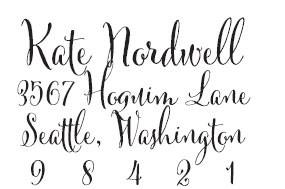 Kate Nordwell
3567 Hoquim Lane
Seattle, Washington
9 8 4 2 1